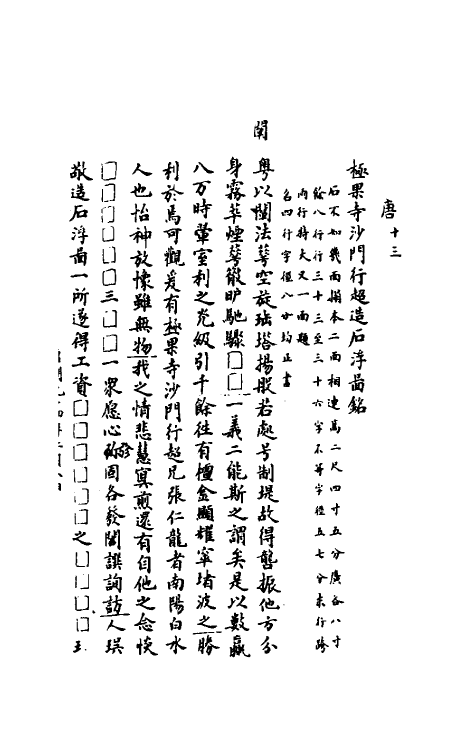 唐十三
極果寺沙門行超造石浮啚銘
石不知幾面搨本二面相連高二尺四寸五分廣各八寸
餘八行行三十三至三十六字不等字徑五七分末行跨
兩行特大又一面題
名四行字徑八分均正書
闕
粵以闡法蕚空旋珐塔揚般若處号制堤故得聲振他方分
身霧萃煙蕚徹旷馳驟□□一義二能斯之謂矣是以數贏
八万時暈室利之光級引千餘徃有檀金顯耀窣堵波之勝
利於焉可觀爰有極果寺沙門行超兄張仁龍者南陽白水
人也怡神放懷雖無物我之情悲慧寘煎還有自他之念悏
□□□□□□三□□一衆愿心弥固各發闇譔詢訪人琩
敬造石浮啚一所遂得工資□□□□□□□之□□□□玉